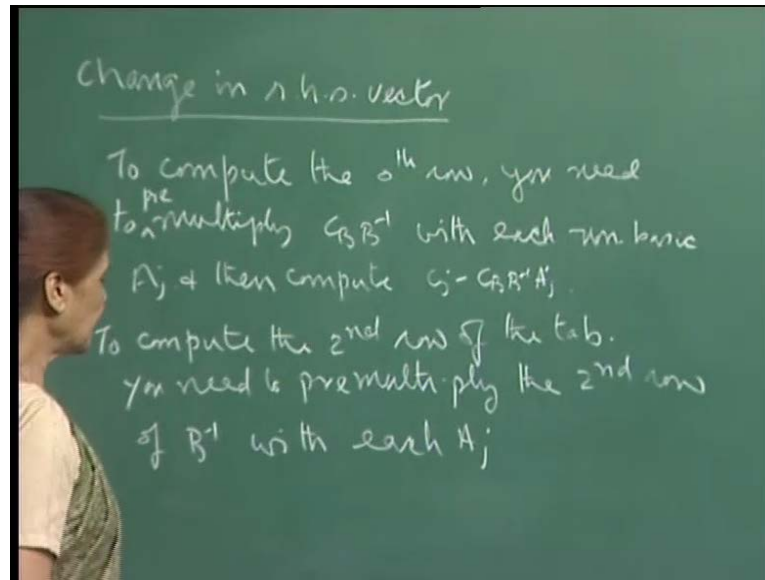 Change in r.h.s. vector
To compute the 0th row, you need
to pre multiply C_B B⁻¹ with each non basic
A_j & then compute c_j - C_B B⁻¹ A_j.
To compute the 2nd row of the tab.
you need to premultiply the 2nd row
of B⁻¹ with each A_j